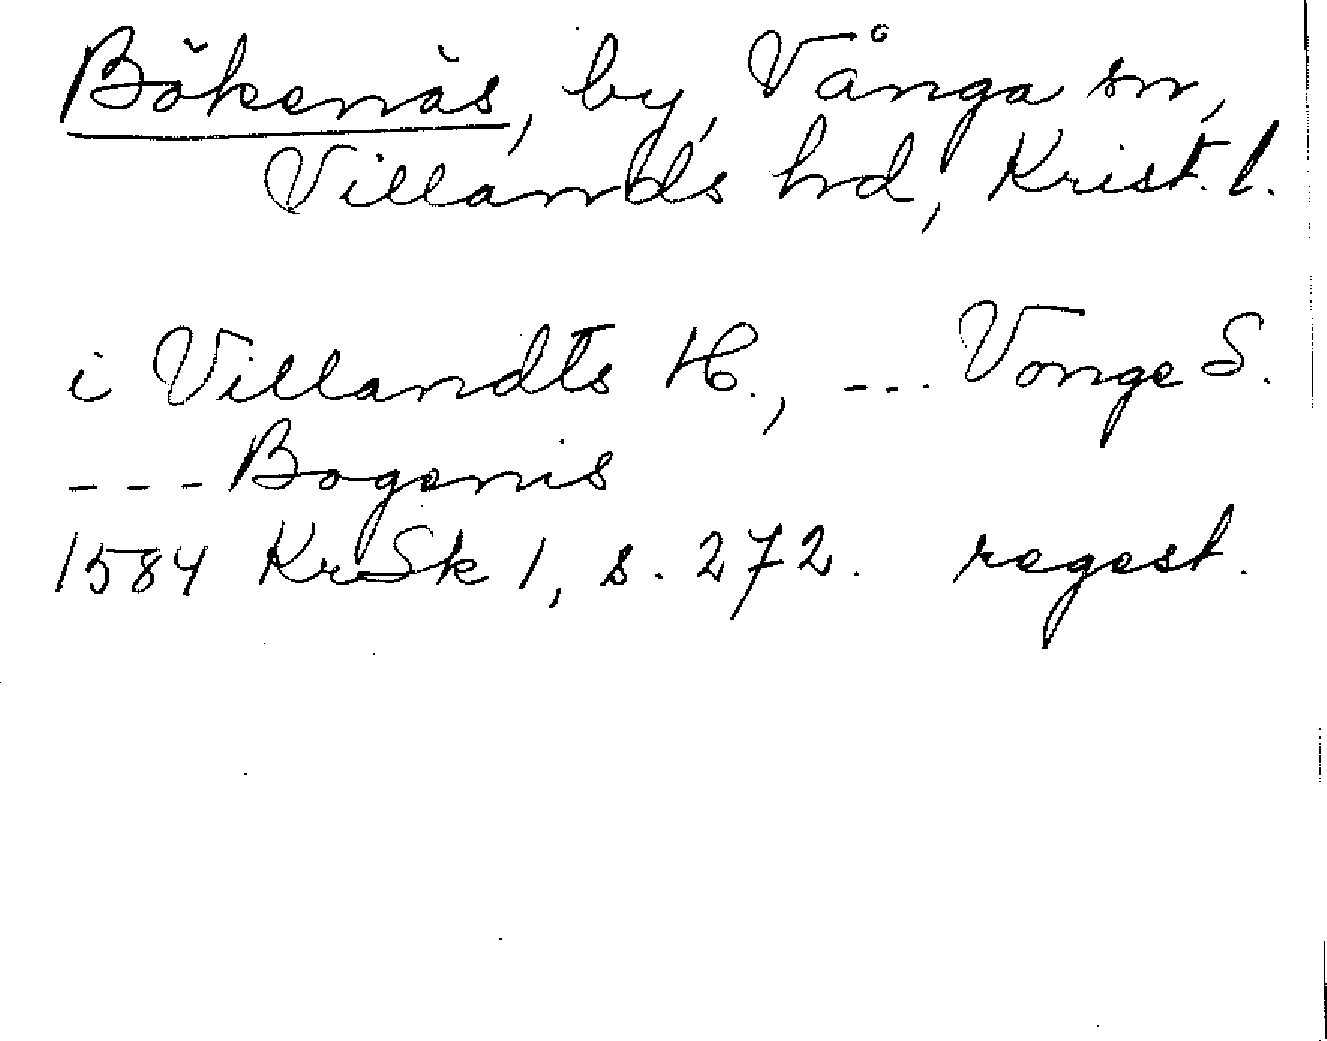 Bökenäs, by, Vånga sn,
Villands hd, Krist. l.
i Villandts H., --- Vonge S.
--- Bogenis
1584 KrSk 1, s. 272. regest.